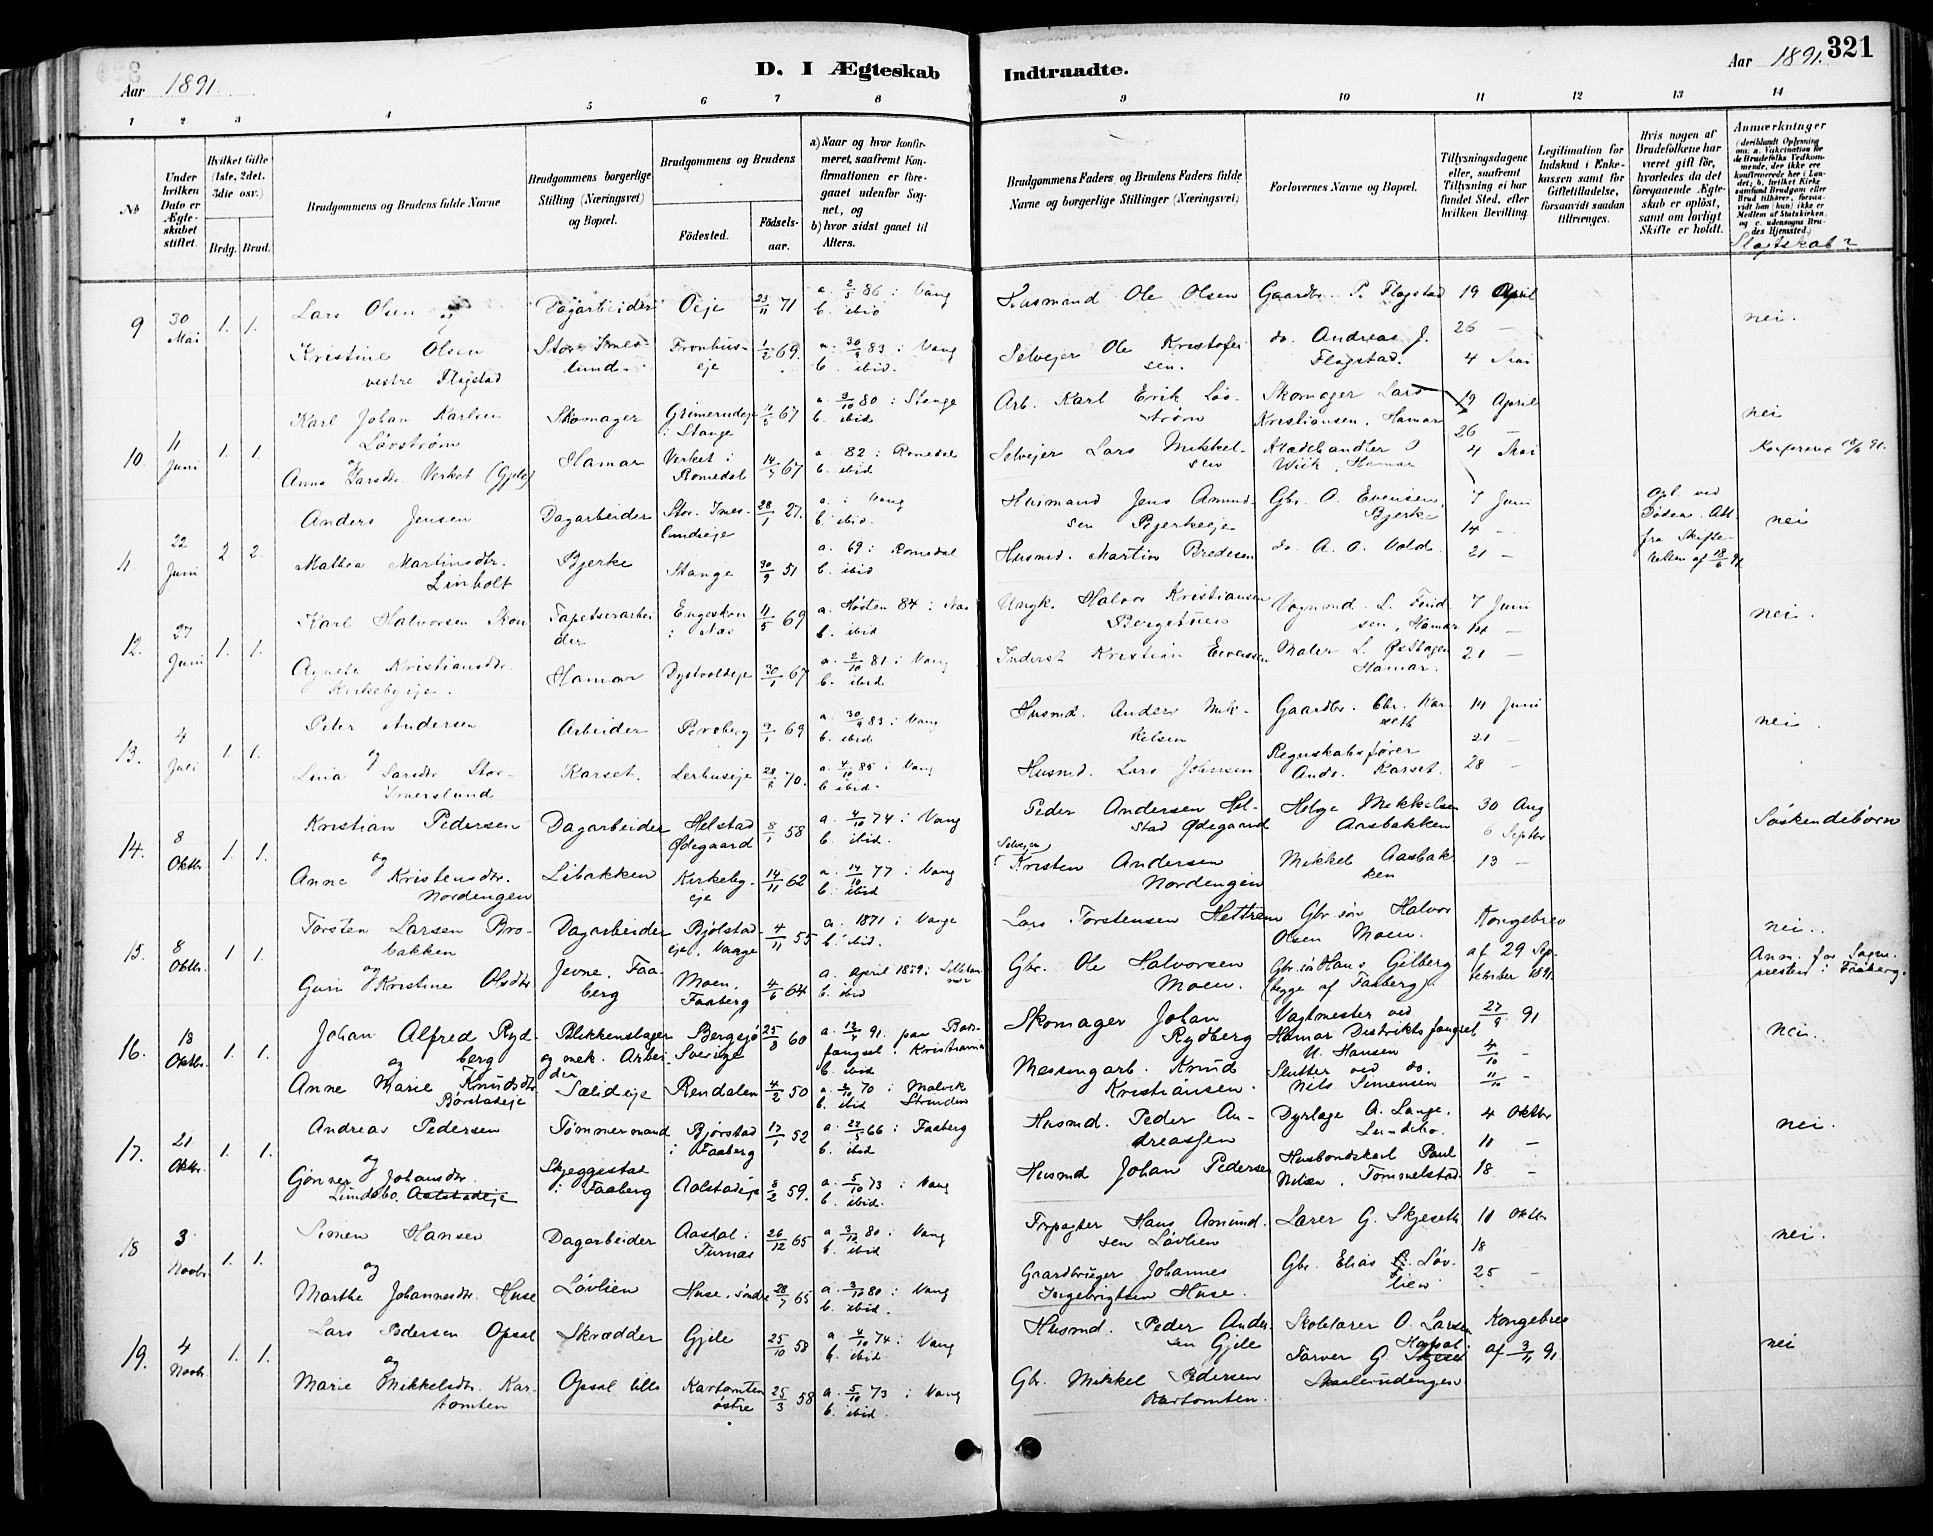 321
Aar 1891
D. I Ægteskab
Indtraadte.
Aar 1891.
1 2 3 4 5 6 7 8 9 10 11 12 13 14
No
Under hvilken Dato er Ægteskabet stiftet.
Hvilket Gifte (1ste, 2det, 3die osv.)
Brdg. Brud.
Brudgommens og Brudens fulde Navne
Brudgommens borgerlige Stilling (Næringsvei) og Bopæl.
Brudgommens og Brudens
Fødested.
Fødselsaar.
a) Naar og hvor konfirmeret, saafremt Konfirmationen er foregaaet udenfor Sognet, og
b) hvor sidst gaaet til Alters.
Brudgommens Faders og Brudens Faders fulde Navne og borgerlige Stillinger (Næringsvei)
Forlovernes Navne og Bopæl.
Tillysningsdagene eller, saafremt Tillysning ei har fundet Sted, efter hvilken Bevilling.
Legitimation for Indskud i Enkekassen samt for Giftetilladelse, forsaavidt saadan tiltrænges.
Hvis nogen af Brudefolkene har været gift før, hvorledes da det foregaaende Ægteskab er opløst, samt om lovligt Skifte er holdt.
Anmærkninger
(deriblandt Oplysning om: a. Vakcination for de Brudefolks Vedkommende, der ikke ere konfirmerede her i Landet; b. hvilket Kirkesamfund Brudgom eller Brud tilhører, forsaavidt han (hun) ikke er Medlem af Statskirken, og c. udensogns Brudes Hjemsted.)
Slægtskab?
9 30 Mai 1. 1. Lars Olsen og Dagarbeider Oeje 23/11 71 a. 2/5 86 i Vang b. ibid Husmand Ole Olsen Gaardbr. P. Flagstad 19 April nei.
Kristine Olsen vestre Flagstad Stor-Imeslund Fronhuseje 1/2 69. a. 30/9 83 i Vang b. ibid. Selvejer Ole Kristofersen. do. Andreas J. Flagstad. 26 — 4 Mai
10. 11 Juni 1. 1. Karl Johan Karlsen Løvstrøm og Skomager Grimerudeje i Stange 11/5 67 a. 3/10 80 i Stange b. ibid Arb. Karl Erik Løvstrøm Skomager Lars Kristiansen, Hamar 19 April 26 — nei
Anne Larsdtr. Verket (Gjile) Hamar Verket i Romedal 14/5 67 a. 82 i Romedal b. ibid Selvejer Lars Mikkelsen Klædehandler O Wiik, Hamar 4 Mai
Anders Jensen Dagarbeider Stor-Imeslundeje 28/1 27. a. i Vang b. ibid. Husmand Jens Amundsen Bjerkeeje Gbr. O. Evensen Bjerke 7 Juni 14 — Opl. ved Døden. Att. fra Skifteretten af 18/6 91 nei
22 Juni 2 2. Mathea Martinsdtr. Linholt Bjerke Stange 30/9 51 a. 69 i Romedal b. ibid Husmd. Martin Bredesen do. A. O. Vold 21 —
12. 27 Juni 1. 1. Karl Halvorsen Skou Tapetserarbeider Engeskou i Næs 11/5 69 a. Høsten 84 i Næs b. ibid Ungk. Halvor Kristiansen Bergstuen Vognmd. L. Findsen, Hamar 7 Juni 14 — nei.
Agnete Kristiansdtr. Kirkebyeje. Hamar Dystvoldeje 30/1 67 a. 2/10 81 i Vang b. ibid Inderst Kristian Evensen Maler L. Østhagen Hamar. 21 —
13. 4 Juli 1. 1. Peter Andersen og Arbeider Broberg 9/1 69 a. 30/9 83 i Vang b. ibid Husmd. Anders Mikkelsen Gaardbr. Chr. Karseth 14 Juni 21 — nei
Lina Larsdtr. Stor-Imerslund Karset. Lerhuseje 28/8 70. a. 4/10 85 i Vang b. ibid. Husmd. Lars Johnsen Regnskabsfører Ands. Karset. 28 —
14. 8 Oktbr. 1. 1. Kristian Pedersen og Dagarbeider Helstad Ødegaard 8/1 58 a. 4/10 74 i Vang b. ibid Peder Andersen Helstad Ødegaard Helge Mikkelsen Aasbakken 30 Aug 6 Septbr Søskendebørn
Anne Kristensdtr. Nordengen Libakken Kirkebyeje 14/11 62 a. 14/10 77 i Vang b. ibid Selvejer Kristen Andersen Nordengen Mikkel Aasbakken 13 —
15. 8 Oktbr. 1 1. Torsten Larsen Brobakken og Dagarbeider Bjølstadeje, Vaage 4/11 55 a. 1871 i Vaage b. ibid. Lars Torstensen Gbr.søn Halvor Olsen Moen. Kongebrev nei.
Guri Kristine Olsdtr Jevne, Faaberg Moen, Faaberg 4/6 64 a. April 1879 i Lillehammer b. ibid Gbr. Ole Halvorsen Moen. Gbr.søn Hans Gilberg (begge af Faaberg). af 29 September 1891 Anm. for Sognepresten i Faaberg.
16. 18 Oktbr. 1. 1. Johan Alfred Rydberg og Blikkenslager og mek. Arbeider Bergsjø Sverige 25/8 60 a. 12/4 91. paa Bodsfængsel i Kristiania b. ibid Skomager Johan Rydberg Vagtmester ved Hamar Distriktsfængsel N. Hansen 27/9 91 nei.
Anne Marie Knudsdtr. Børstadeje Sælideje Rendalen 4/2 50 a. 2/10 70 i Malvik Strinden b. ibid Messingarb. Knud Kristiansen. Slutter ved do. Nils Simensen 4/10 — 11/10 —
17. 21 Oktbr. 1. 1. Andreas Pedersen og Tømmermand Bjørstad i Faaberg 17/1 52 a. 27/5 66 i Faaberg b. ibid Husmd. Peder Andreassen Dyrlæge A. Lange, Lundsbo. 4 Oktbr 11 — nei.
Gønner Johansdtr. Lundsbo Aalstadeje Skjeggestad i Faaberg Aalstadeje 8/2 59. a. 5/10 73 i Vang b. ibid. Husmd Johan Pedersen Husbondskarl Paul Nilsen, Tommelstad 18 —
18 3 Novbr. 1. 1. Simen Hansen og Dagarbeider Aasdal i Furnæs 26/12 65 a. 3/10 80 i Vang b. ibid Forpagter Hans Amundsen Løvlien Lærer G. Skjeseth 11 Oktbr 18 nei.
Marthe Johannesdtr. Huse Løvlien Huse, søndre 28/7 65 a. 3/10 80 i Vang b. ibid. Gaardbruger Johannes Ingebrigtsen Huse. Gbr. Elias Løvlien 25 —
19. 4 Novbr. 1. 1. Lars Pedersen Opsal og Skrædder Gjile 25/10 58 a. 4/10 74 i Vang b. ibid. Husmd. Peder Andersen Gjile Skolelærer O. Larsen Hapsal. Kongebrev nei
Marie Mikkelsdtr. Kartomten Opsal lille Kartomten østre 25/3 58 a. 5/10 73 i Vang b. ibid. Gbr. Mikkel Pedersen Kartomten. Farver G. Skaalerudengen af 3/11 91.